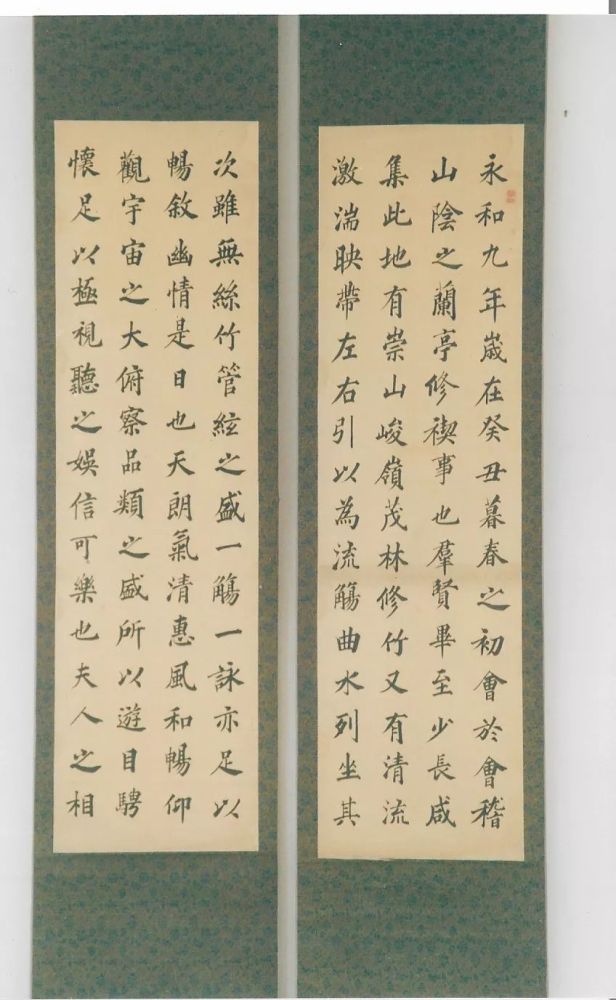 永和九年嵗在癸丑暮春之初會於會稽
山陰之蘭亭修禊事也羣賢畢至少長咸
集此地有崇山峻嶺茂林修竹又有清流
激湍映帶左右引以為流觴曲水列坐其
次雖無絲竹管絃之盛一觴一詠亦足以
暢敘幽情是日也天朗氣清惠風和暢仰
觀宇宙之大俯察品類之盛所以遊目騁
懷足以極視聽之娛信可樂也夫人之相